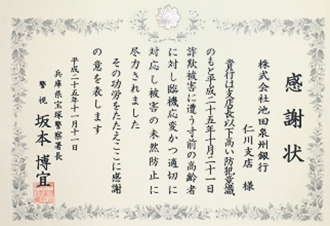 感謝状
株式会社池田泉州銀行
仁川支店 様
貴行は支店長以下高い防犯意識
のもと平成二十五年十月二十一日
詐欺被害に遭う寸前の高齢者
に対し臨機応変かつ適切に
対応し被害の未然防止に
尽力されました
その功労をたたえここに感謝
の意を表します
平成二十五年十一月十一日
兵庫県宝塚警察署長
警視 坂本博宣